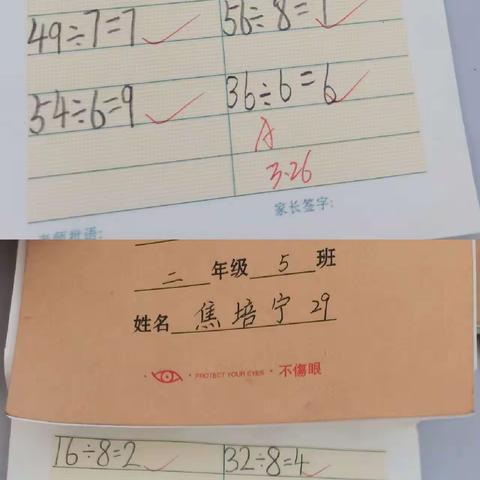 49÷7=7 56÷8=7
54÷6=9 36÷6=6
A
3.26
家长签字:
老师批语:
二年级5班
姓名 焦培宁 29
PROTECT YOUR EYES · 不傷眼
16÷8=2 32÷8=4